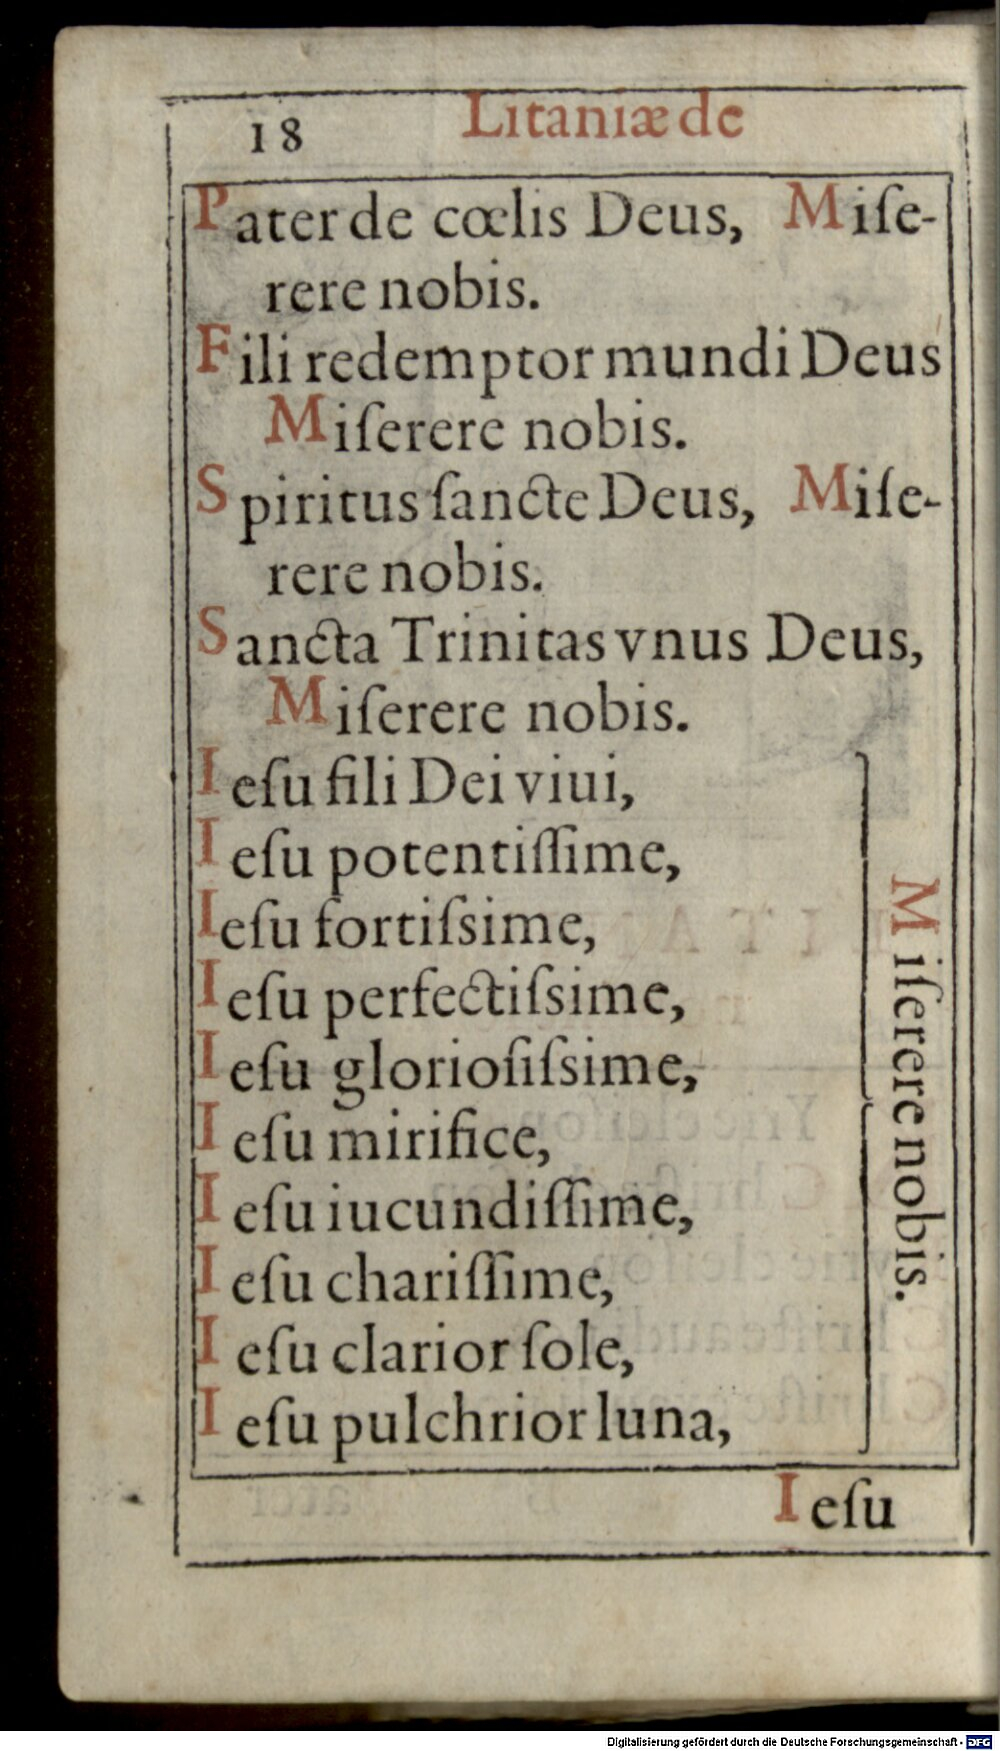 18 Litaniæ de
Pater de cœlis Deus, Miſe-
rere nobis.
Fili redemptor mundi Deus
Miſerere nobis.
Spiritus ſancte Deus, Miſe-
rere nobis.
Sancta Trinitas vnus Deus,
Miſerere nobis.
Ieſu fili Dei viui,
Ieſu potentiſſime,
Ieſu fortiſsime,
Ieſu perfectiſsime,
Ieſu glorioſiſsime,
Ieſu mirifice,
Ieſu iucundiſſime,
Ieſu chariſſime,
Ieſu clarior ſole,
Ieſu pulchrior luna,
Miſerere nobis.
Ieſu
Digitalisierung gefördert durch die Deutsche Forschungsgemeinschaft - DFG